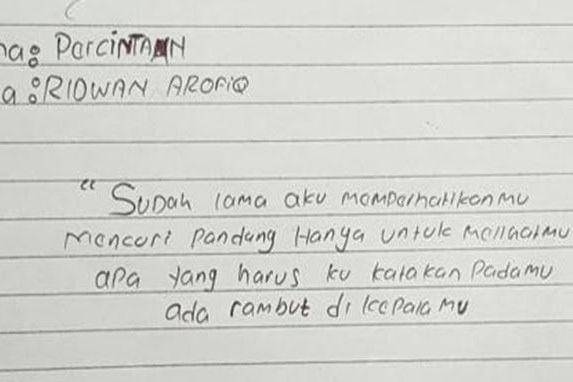 na: PercintAAN
a: RIDWAN AROFIQ
" Sudah lama aku memperhatikanmu
mencuri pandang Hanya untuk melihatmu
apa yang harus ku katakan padamu
ada rambut di kepalamu